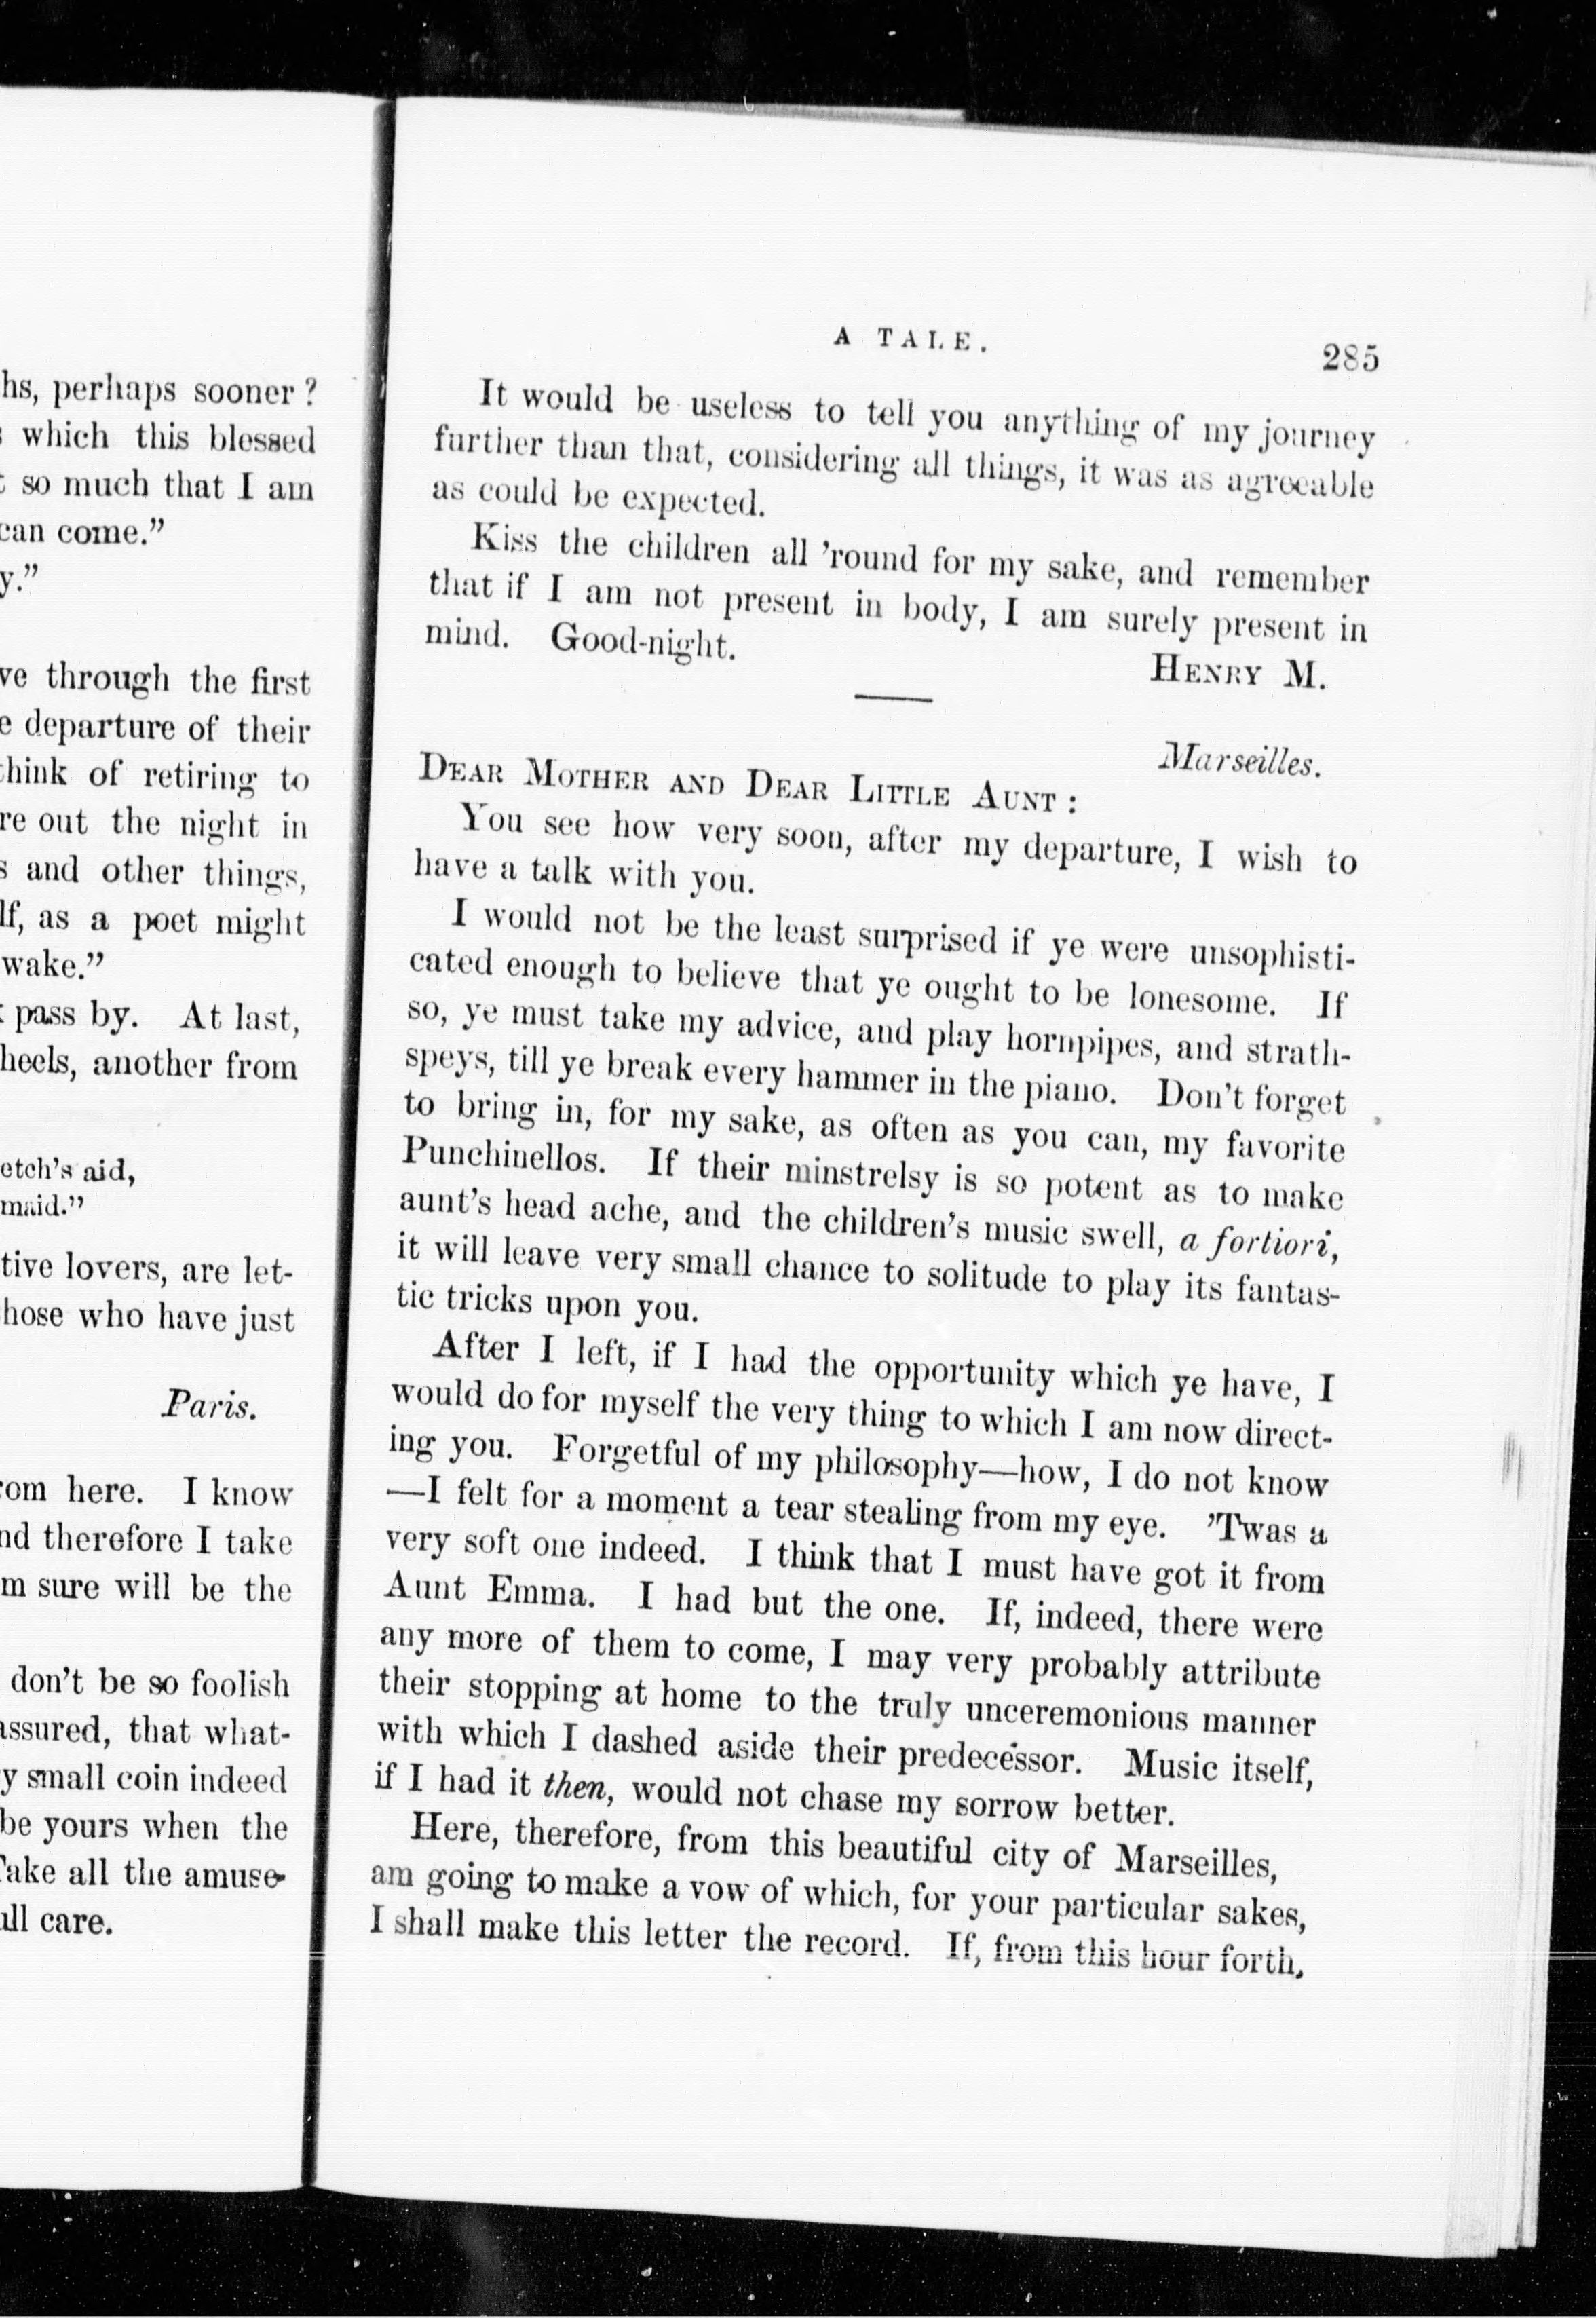 hs, perhaps sooner?
which this blessed
so much that I am
can come."
y."
ve through the first
e departure of their
think of retiring to
re out the night in
s and other things,
lf, as a poet might
wake."
pass by. At last,
heels, another from
etch's aid,
maid."
tive lovers, are let-
hose who have just
Paris.
rom here. I know
nd therefore I take
m sure will be the
don't be so foolish
assured, that what-
y small coin indeed
be yours when the
Take all the amuse-
all care.
A TALE. 285
It would be useless to tell you anything of my journey
further than that, considering all things, it was as agreeable
as could be expected.
Kiss the children all 'round for my sake, and remember
that if I am not present in body, I am surely present in
mind. Good-night.
HENRY M.
Marseilles.
DEAR MOTHER AND DEAR LITTLE AUNT:
You see how very soon, after my departure, I wish to
have a talk with you.
I would not be the least surprised if ye were unsophisti-
cated enough to believe that ye ought to be lonesome. If
so, ye must take my advice, and play hornpipes, and strath-
speys, till ye break every hammer in the piano. Don't forget
to bring in, for my sake, as often as you can, my favorite
Punchinellos. If their minstrelsy is so potent as to make
aunt's head ache, and the children's music swell, a fortiori,
it will leave very small chance to solitude to play its fantas-
tic tricks upon you.
After I left, if I had the opportunity which ye have, I
would do for myself the very thing to which I am now direct-
ing you. Forgetful of my philosophy—how, I do not know
—I felt for a moment a tear stealing from my eye. 'Twas a
very soft one indeed. I think that I must have got it from
Aunt Emma. I had but the one. If, indeed, there were
any more of them to come, I may very probably attribute
their stopping at home to the truly unceremonious manner
with which I dashed aside their predecessor. Music itself,
if I had it then, would not chase my sorrow better.
Here, therefore, from this beautiful city of Marseilles,
am going to make a vow of which, for your particular sakes,
I shall make this letter the record. If, from this hour forth,